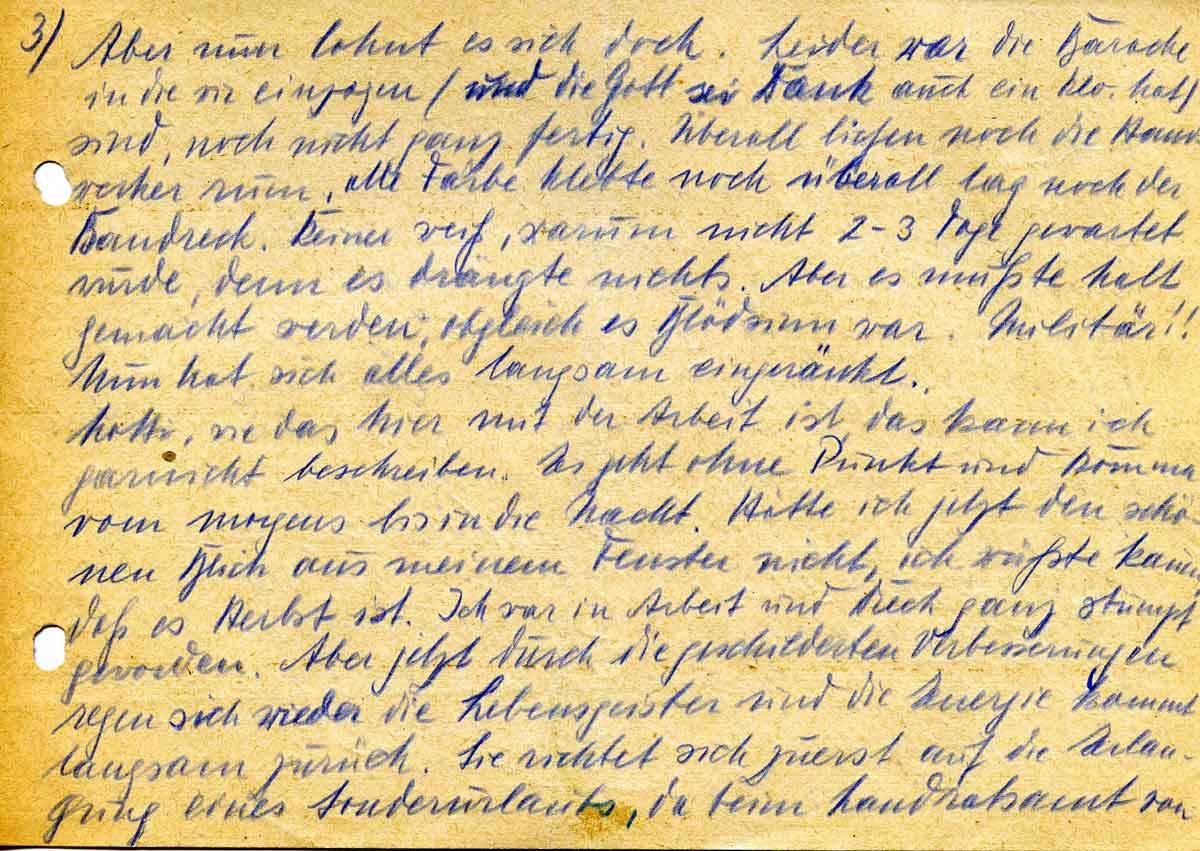 3) Aber nun lohnt es sich doch. Leider war die Baracke
in die wir einzogen (und die Gott sei Dank auch ein Klo. hat)
sind, noch nicht ganz fertig. Überall liefen noch die Hand
werker rum, alle Farbe klebte noch überall lag noch der
Baudreck. Keiner weiß, warum nicht 2-3 Tage gewartet
wurde, denn es drängte nichts. Aber es mußte halt
gemacht werden, obgleich es Blödsinn war. Militär!!
Nun hat sich alles langsam eingeränkt.
wie das hier mit der Arbeit ist, das kann ich
garnicht beschreiben. Es geht ohne Punkt und Komma
vom morgens bis in die Nacht. Hätte ich jetzt den schö
nen Blick aus meinem Fenster nicht, ich wüßte kaum
daß es Herbst ist. Ich war in Arbeit und Dreck ganz stumpf
geworden. Aber jetzt durch die geschilderten Verbesserungen
regen sich wieder die Lebensgeister und die Energie kommt
langsam zurück. Sie richtet sich zuerst auf die Erlan-
gung eines Sonderurlaubs, da beim Landratsamt von